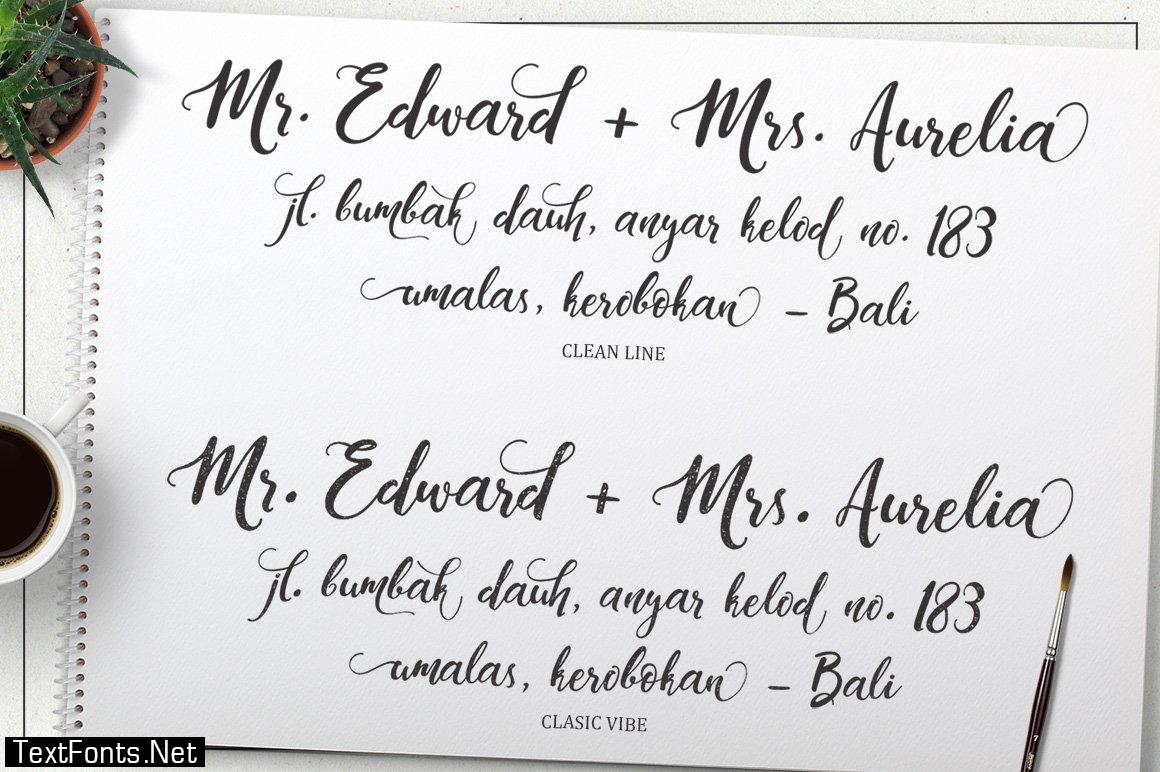 Mr. Edward + Mrs. Aurelia
jl. bumbak dauh, anyar kelod no. 183
umalas, kerobokan - Bali
CLEAN LINE
Mr. Edward + Mrs. Aurelia
jl. bumbak dauh, anyar kelod no. 183
umalas, kerobokan - Bali
CLASIC VIBE
7
TextFonts.Net